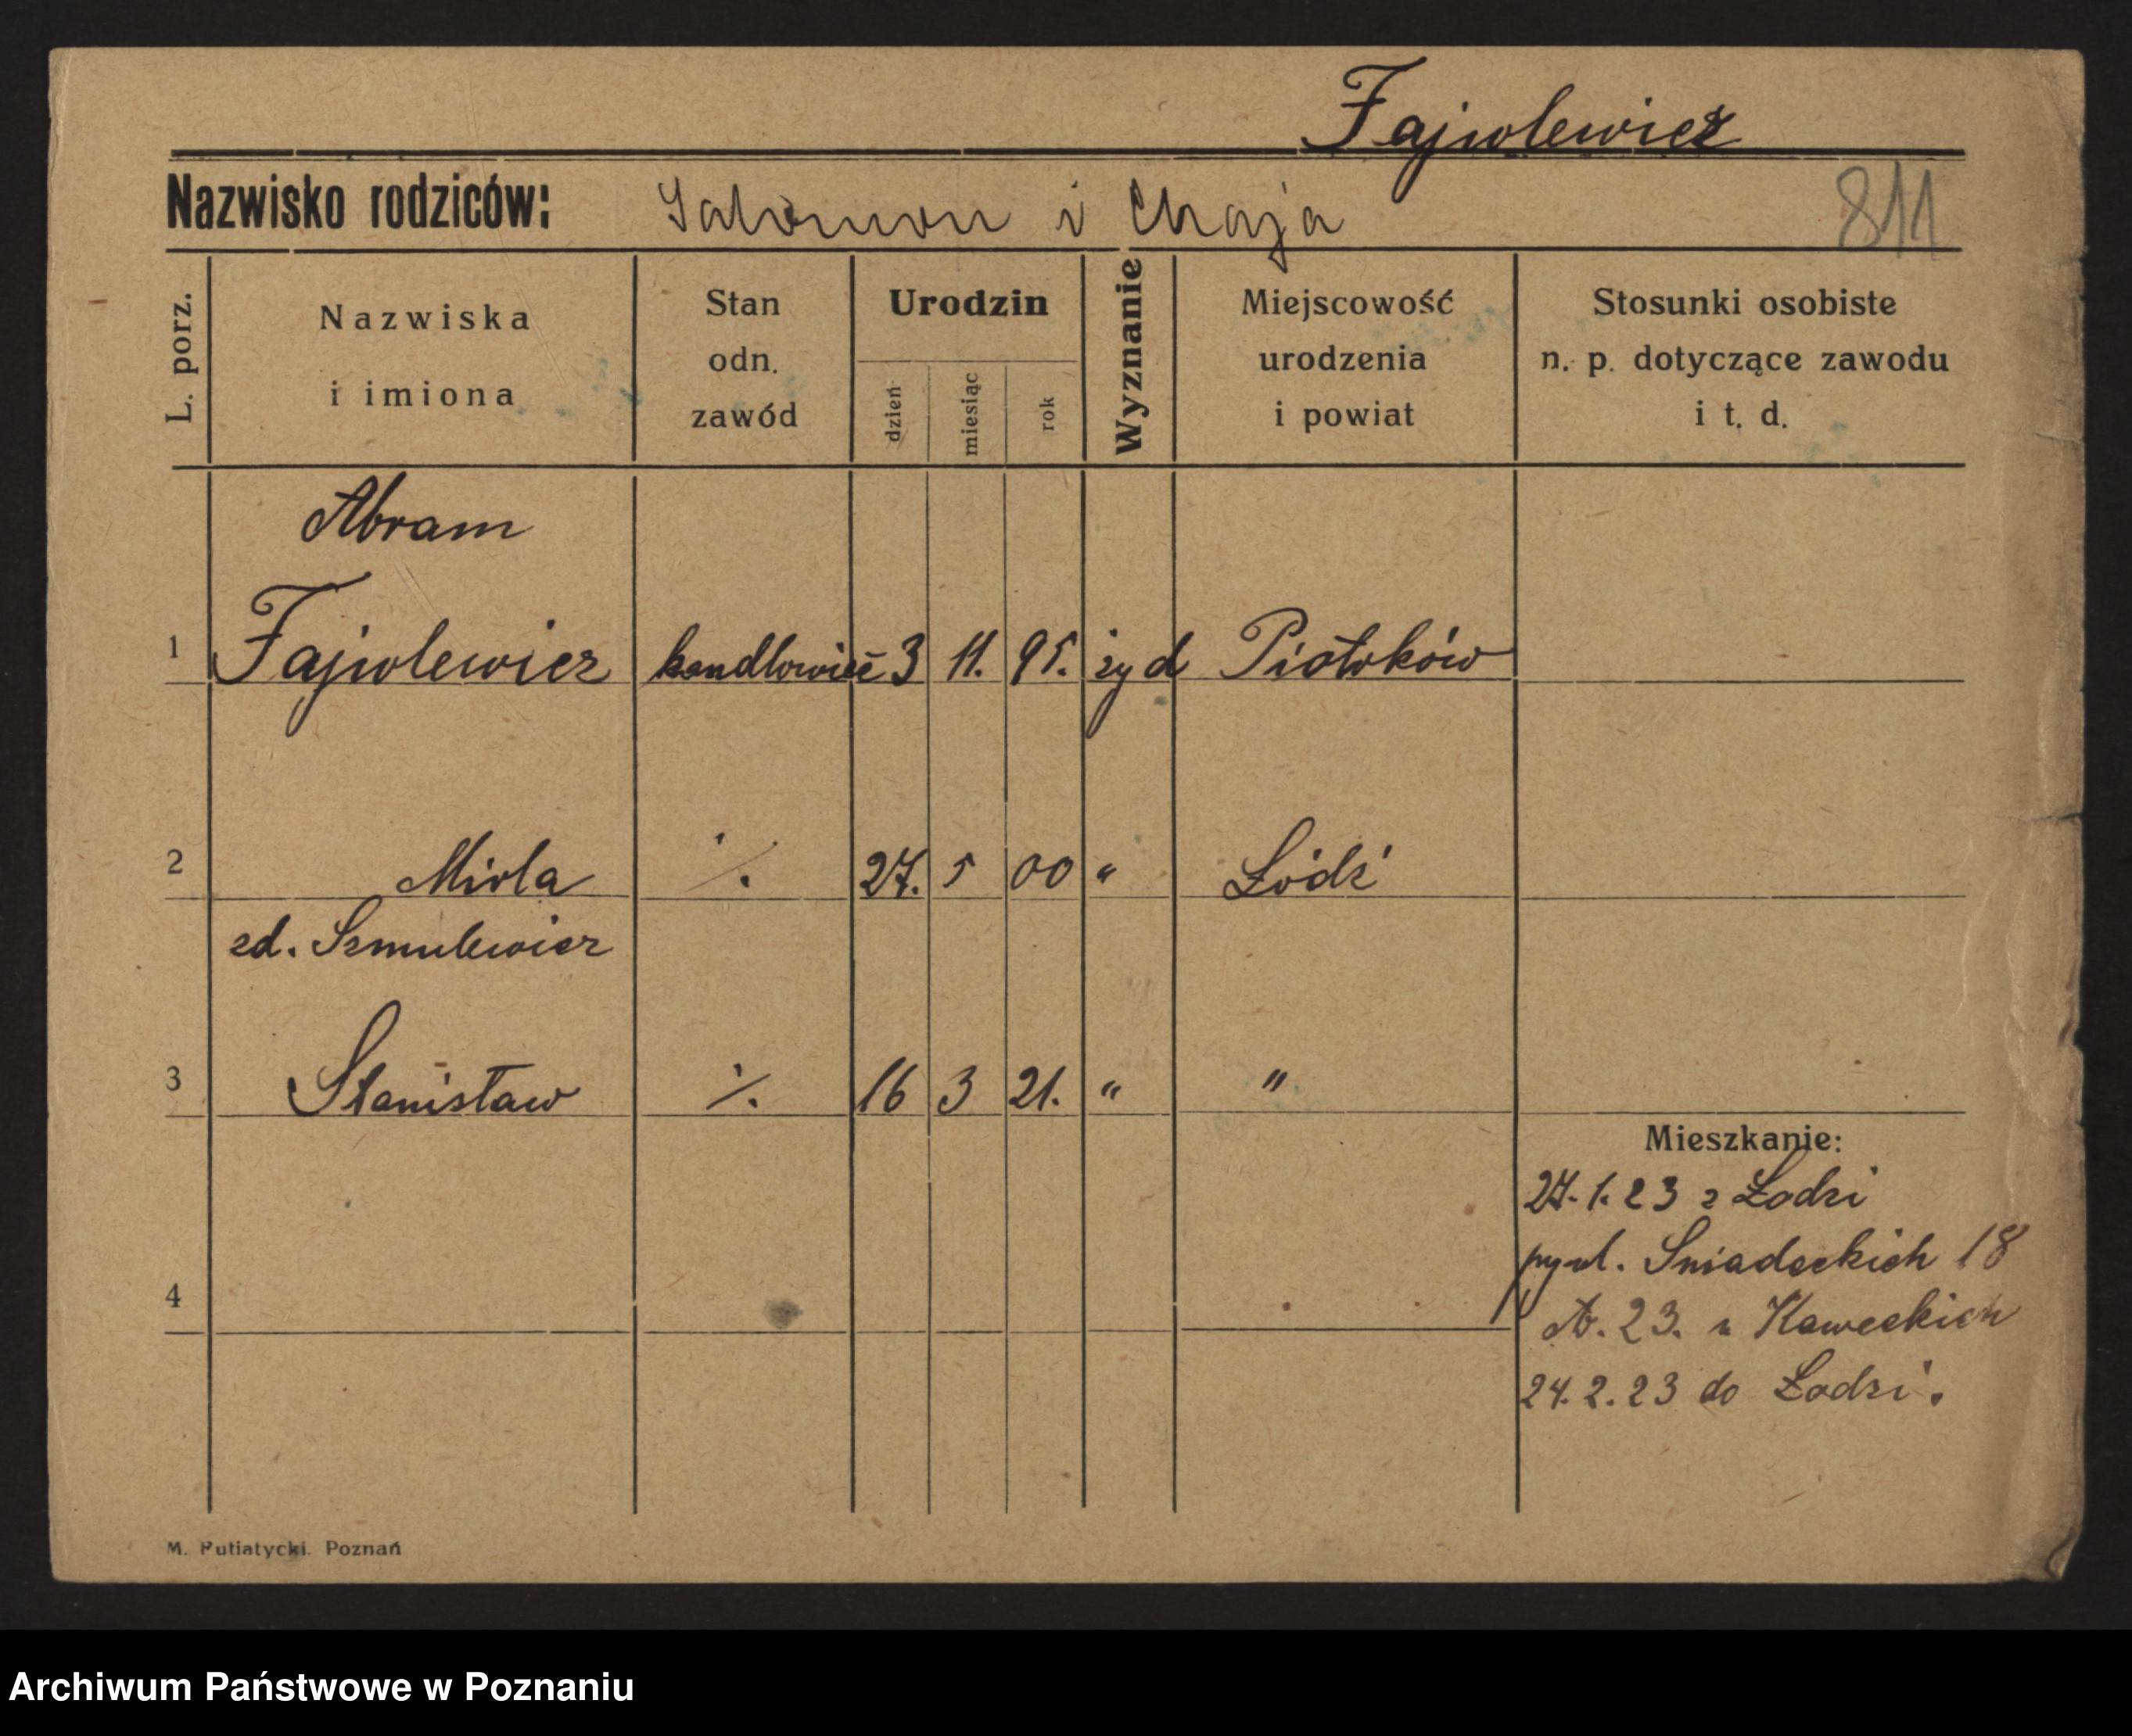 Fajwlewicz
Nazwisko rodziców: Salomon i Chaja 811
L. porz.
Nazwiska
i imiona
Stan
odn.
zawód
Urodzin
dzień
miesiąc
rok
Wyznanie
Miejscowość
urodzenia
i powiat
Stosunki osobiste
n. p. dotyczące zawodu
i t. d.
Abram
1 Fajwlewicz handlowiec 3 11. 95. żyd Piotrków
2 Mirla ·/. 27. 5 00 " Łódź
zd. Szmulewicz
3 Stanisław ·/. 16 3 21. " "
Mieszkanie:
27.1.23 z Łodzi
ul. Sniadeckich 18
4
23. u Kaweckich
24.2.23 do Łodzi.
M. Putiatycki. Poznań
Archiwum Państwowe w Poznaniu